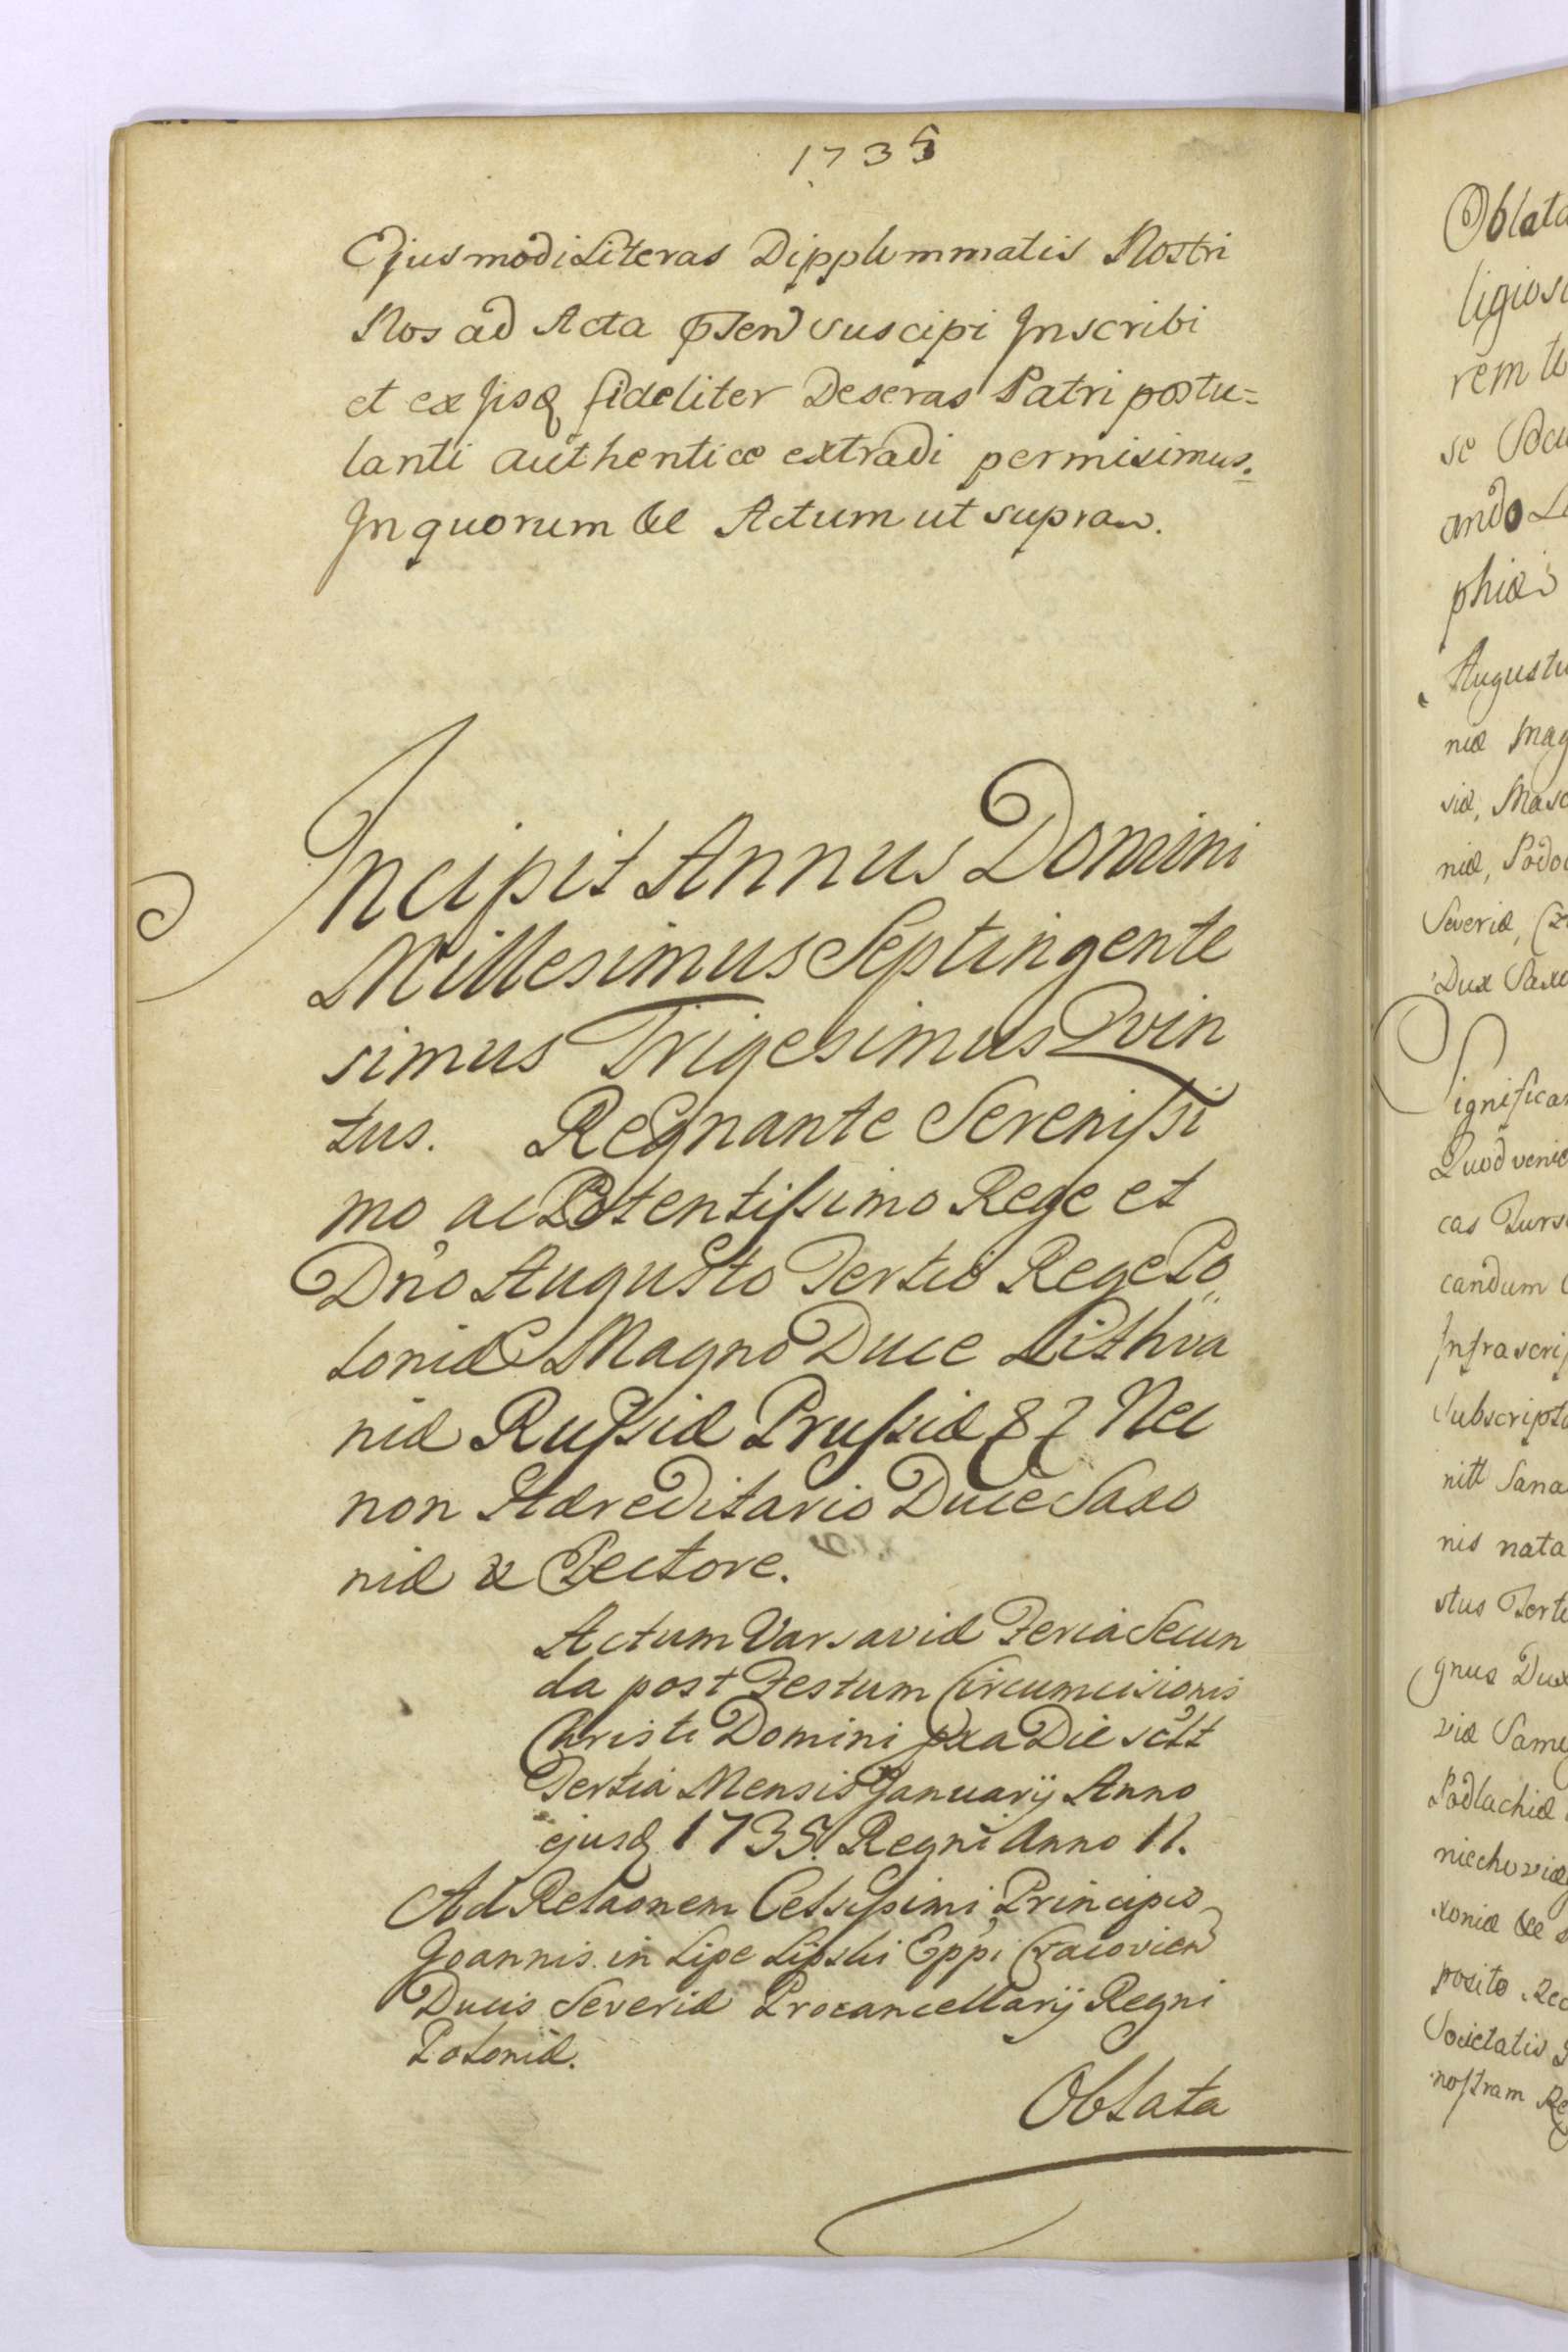 1735
Ejusmodi Literas Dipplommatis Nostri
Nos ad Acta suscipi Inscribi
et ex Jisq fideliter Deseras Patri postu=
lanti authentice extradi permisimus.
In quorum &c Actum ut supra.
Incipit Annus Domini
Millesimus Septingente
simus Trigesimus Qvin
tus. Regnante Serenissi
mo ac Potentissimo Rege et
Dno Augusto Tertio Rege Po,,
loniæ Magno Duce Lithva
niæ Russiæ Prussiæ &c Nec
non Hæreditario Duce Saxo
niæ & Electore.
Actum Varsaviæ Feria Secun
da post Festum Circumcisionis
Christi Domini pxa Die sclt
Tertia Mensis Januarij Anno
ejusq 1735. Regni Anno 11.
Ad Relaonem Celsissimi Principis
Joannis in Lipe Lipski Eppi Cracovien
Ducis Severiæ Procancellarij Regni
Poloniæ.
Oblata
Oblata
ligios
rem
se
ando
phiæ
Augustu
niæ Mag
siæ, Maso
niæ, Podo
Severiæ,
Dux Saxo
Significa
Quod veni
cas
candum
Infrascri
Subscripto
nitt Sana
nis nata
stus Terti
gnus Dux
viæ Same
Podlachiæ
niechoviæ
xoniæ &c
posito Rec
Societatis
nostram Re